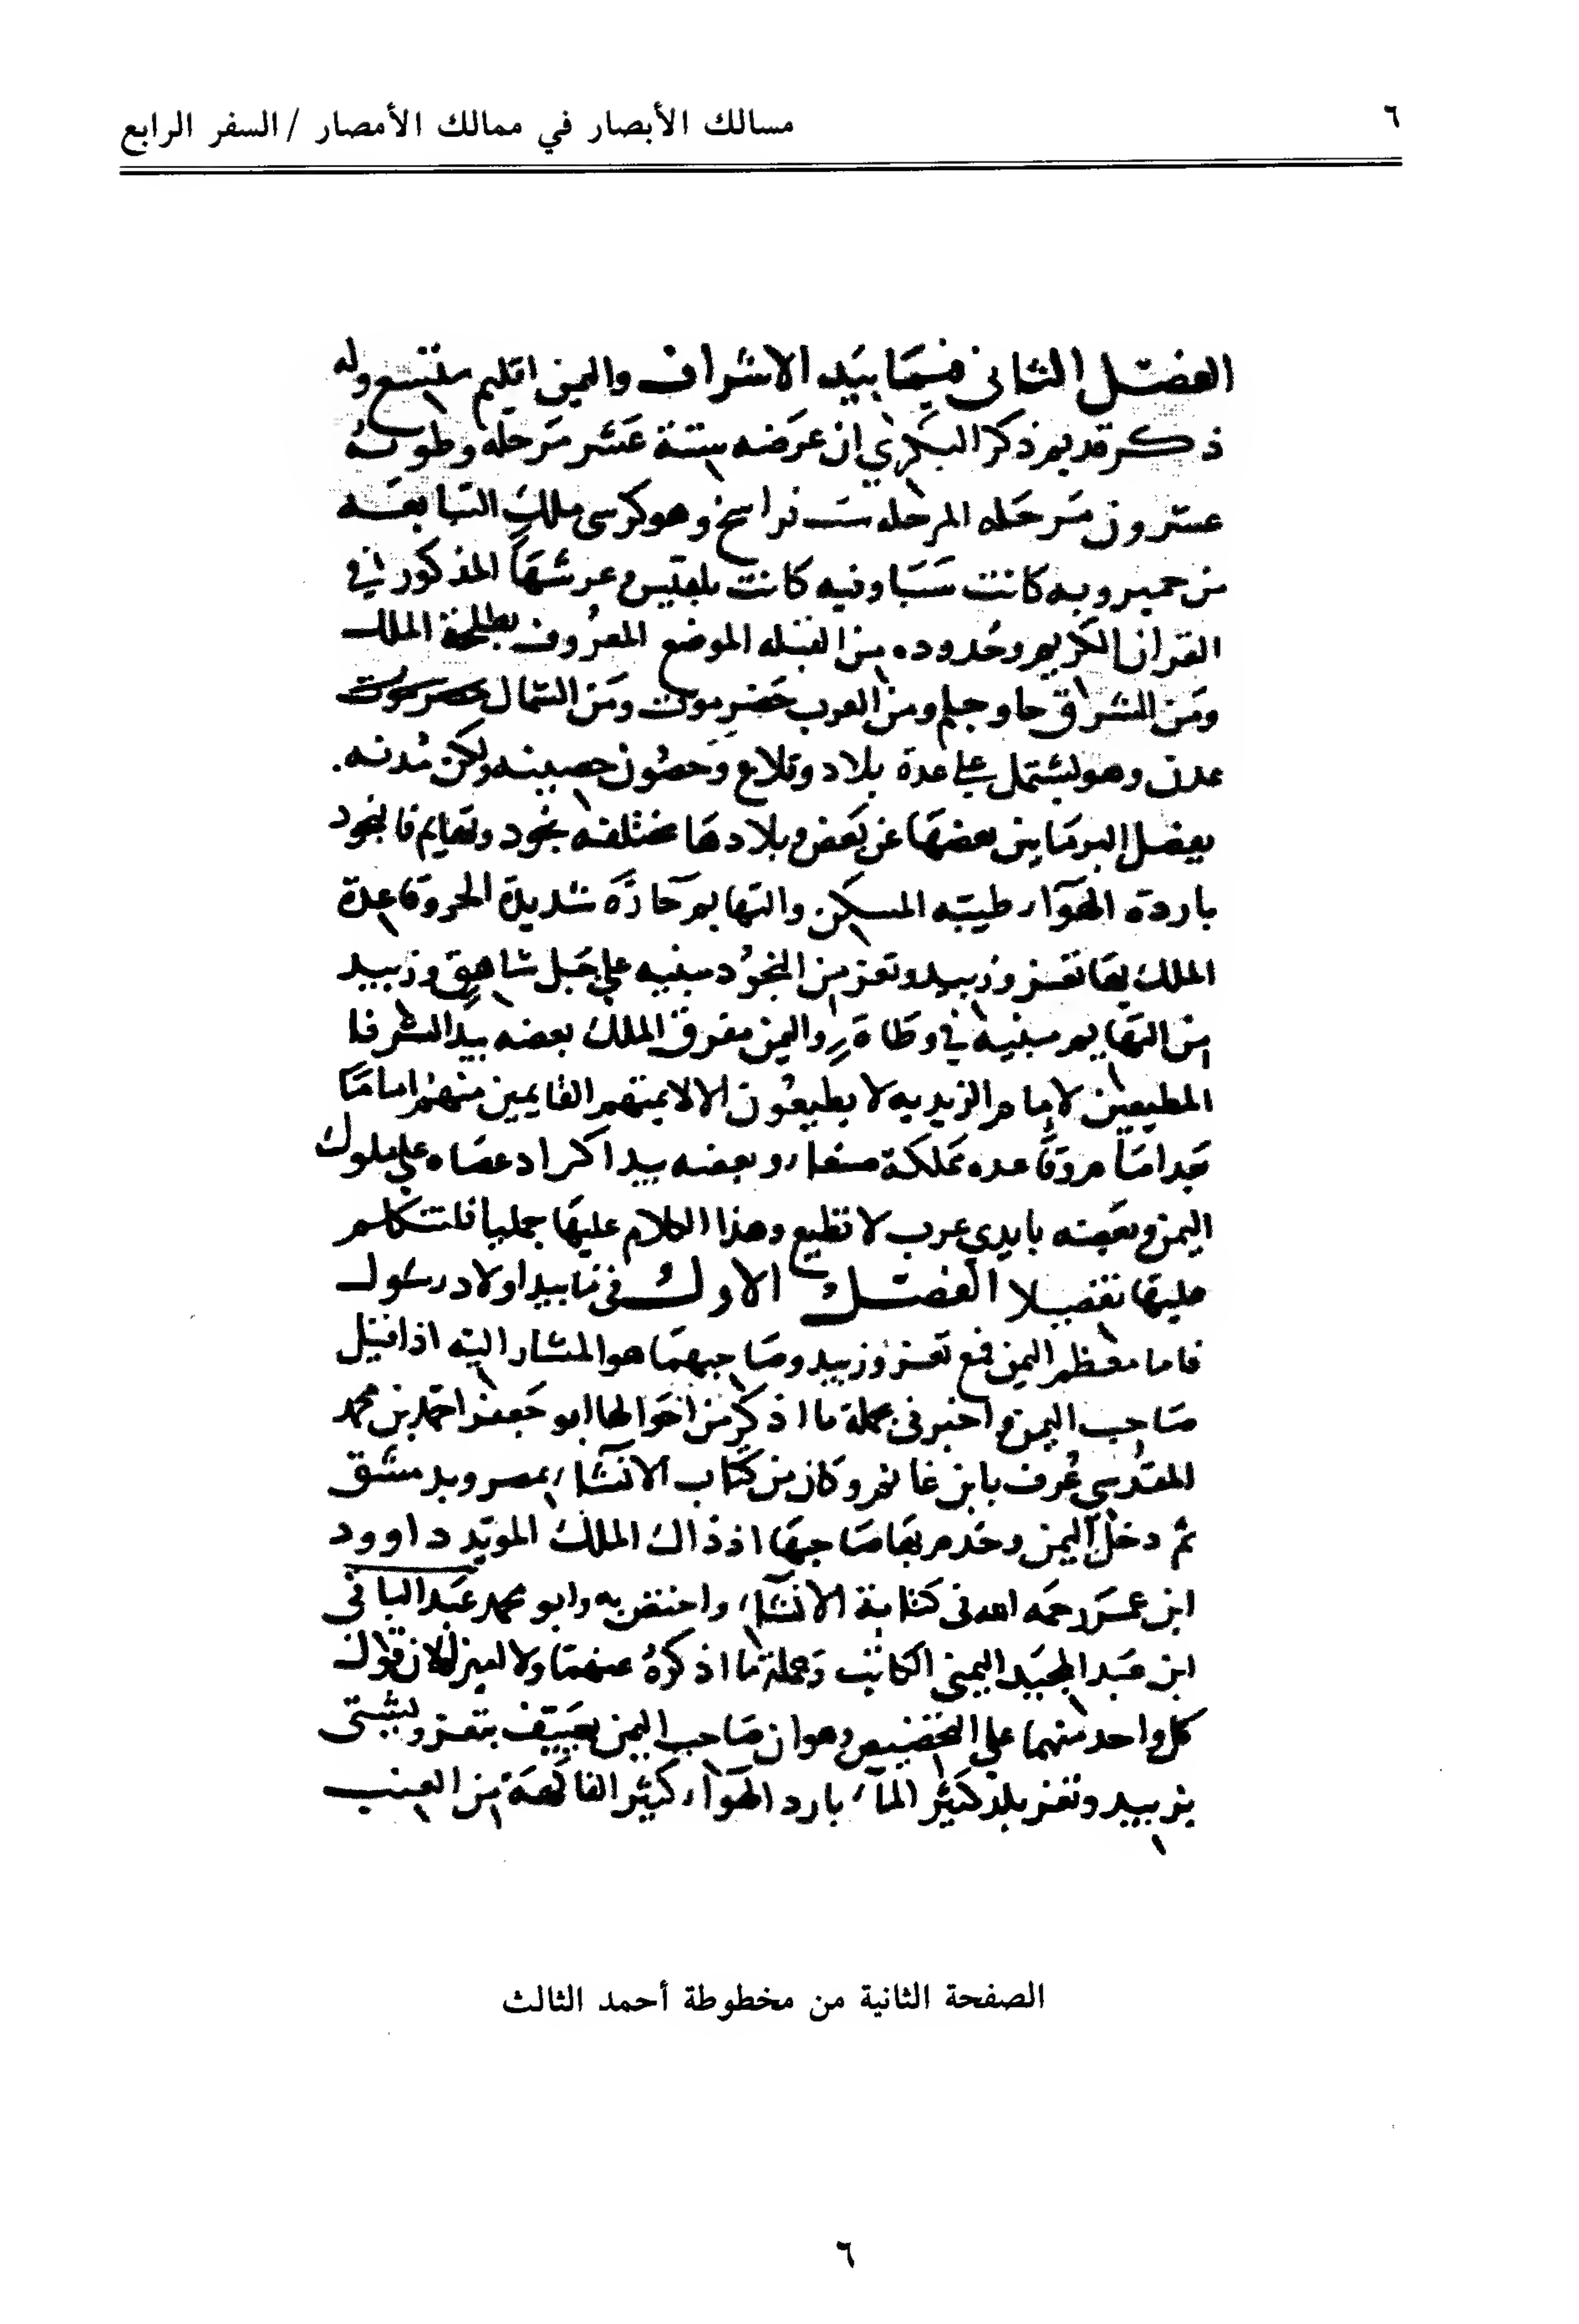 ٦
مسالك الأبصار في ممالك الأمصار /السفر الرابع
الفصل الثاني فيما بيد الاشراف واليمن اقليم متسع وله
ذكر قديم ذكر البكري ان عرضه ستة عشر مرحله وطوله
عشرون مرحله المرحله ست فراسخ وهو كرسى ملك التبابعه
من حمير وبه كانت سبا وفيه كانت بلقيس وعرشها المذكور في
القران الكريم وحدوده من القبله الموضع المعروف بطلحة الملك
ومن الشرق حا وجلم ومن الغرب حضرموت ومن الشمال حضرموت
عدن وهو يشتمل على عدة بلاد وقلاع وحصون حصينه ولكن مدنه
يفصل البر ما بين بعضها عن بعض وبلادها مختلفه نجود وتهايم فالنجود
باردة الهوآء طيبه المسكن والتهايم حارة شديدة الحر وقاعدة
الملك بها تعز وزبيد وتعز من النجود مبنيه على جبل شاهق وزبيد
من التهايم مبنيه في وطاة واليمن مفرق الملك بعضه بيد الشرفا
المطيعين لامام الزيديه لا يطيعون الا لايمتهم القايمين منهم اماما
بعد امام وقاعده مملكة صنعاء وبعضه بيد اكراد عصاه على ملوك
اليمن وبعضه بايدي عرب لا تطيع وهذا الكلام عليها جمليا فلنتكلم
عليها تفصيلا الفصل الاول في ما بيد اولاد رسول
فاما معظم اليمن فمع تعز وزبيد وصاحبهما هو المشار اليه اذا قيل
صاحب اليمن واخبرني بجملة ما اذكر من احوالها ابو جعفر احمد بن محمد
المقدسي عرف بابن غانم وكان من كتاب الانشاء بمصر وبدمشق
ثم دخل اليمن وخدم بها صاحبها اذ ذاك الملك المويد داوود
ابن عمر رحمه الله فى كتابة الانشآء واختص به وابو محمد عبد الباقي
ابن عبد المجيد اليمني الكاتب وجملة ما اذكره عنهما ولا اميز الان قول
كل واحد منهما على التخصيص وهو ان صاحب اليمن يصيف بتعز ويشتى
بزبيد وتعز بلد كثير المآء بارد الهوآء كثير الفاكهة من العنب
الصفحة الثانية من مخطوطة أحمد الثالث
٦